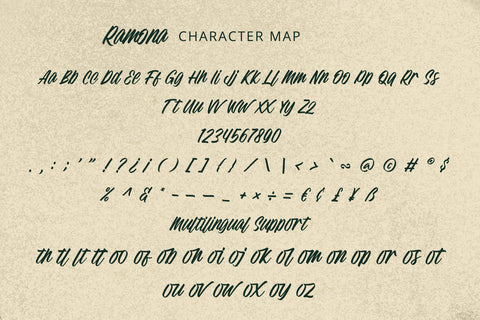 Ramona CHARACTER MAP
Aa Bb Cc Dd Ee Ff Gg Hh Ii Jj Kk Ll Mm Nn Oo Pp Qq Rr Ss
Tt Uu Vv Ww Xx Yy Zz
1234567890
. , : ; ' " ! ? ¿ ¡ ( ) [ ] { } / \ | < > ` ~ @ © # ® $
% ^ & * – — – _ + × ÷ = € ¢ £ ¥ ß
Multilingual Support
th tl ft tt oo of ob oh oi oj ok ol om on op or os ot
ou ov ow ox oy oz